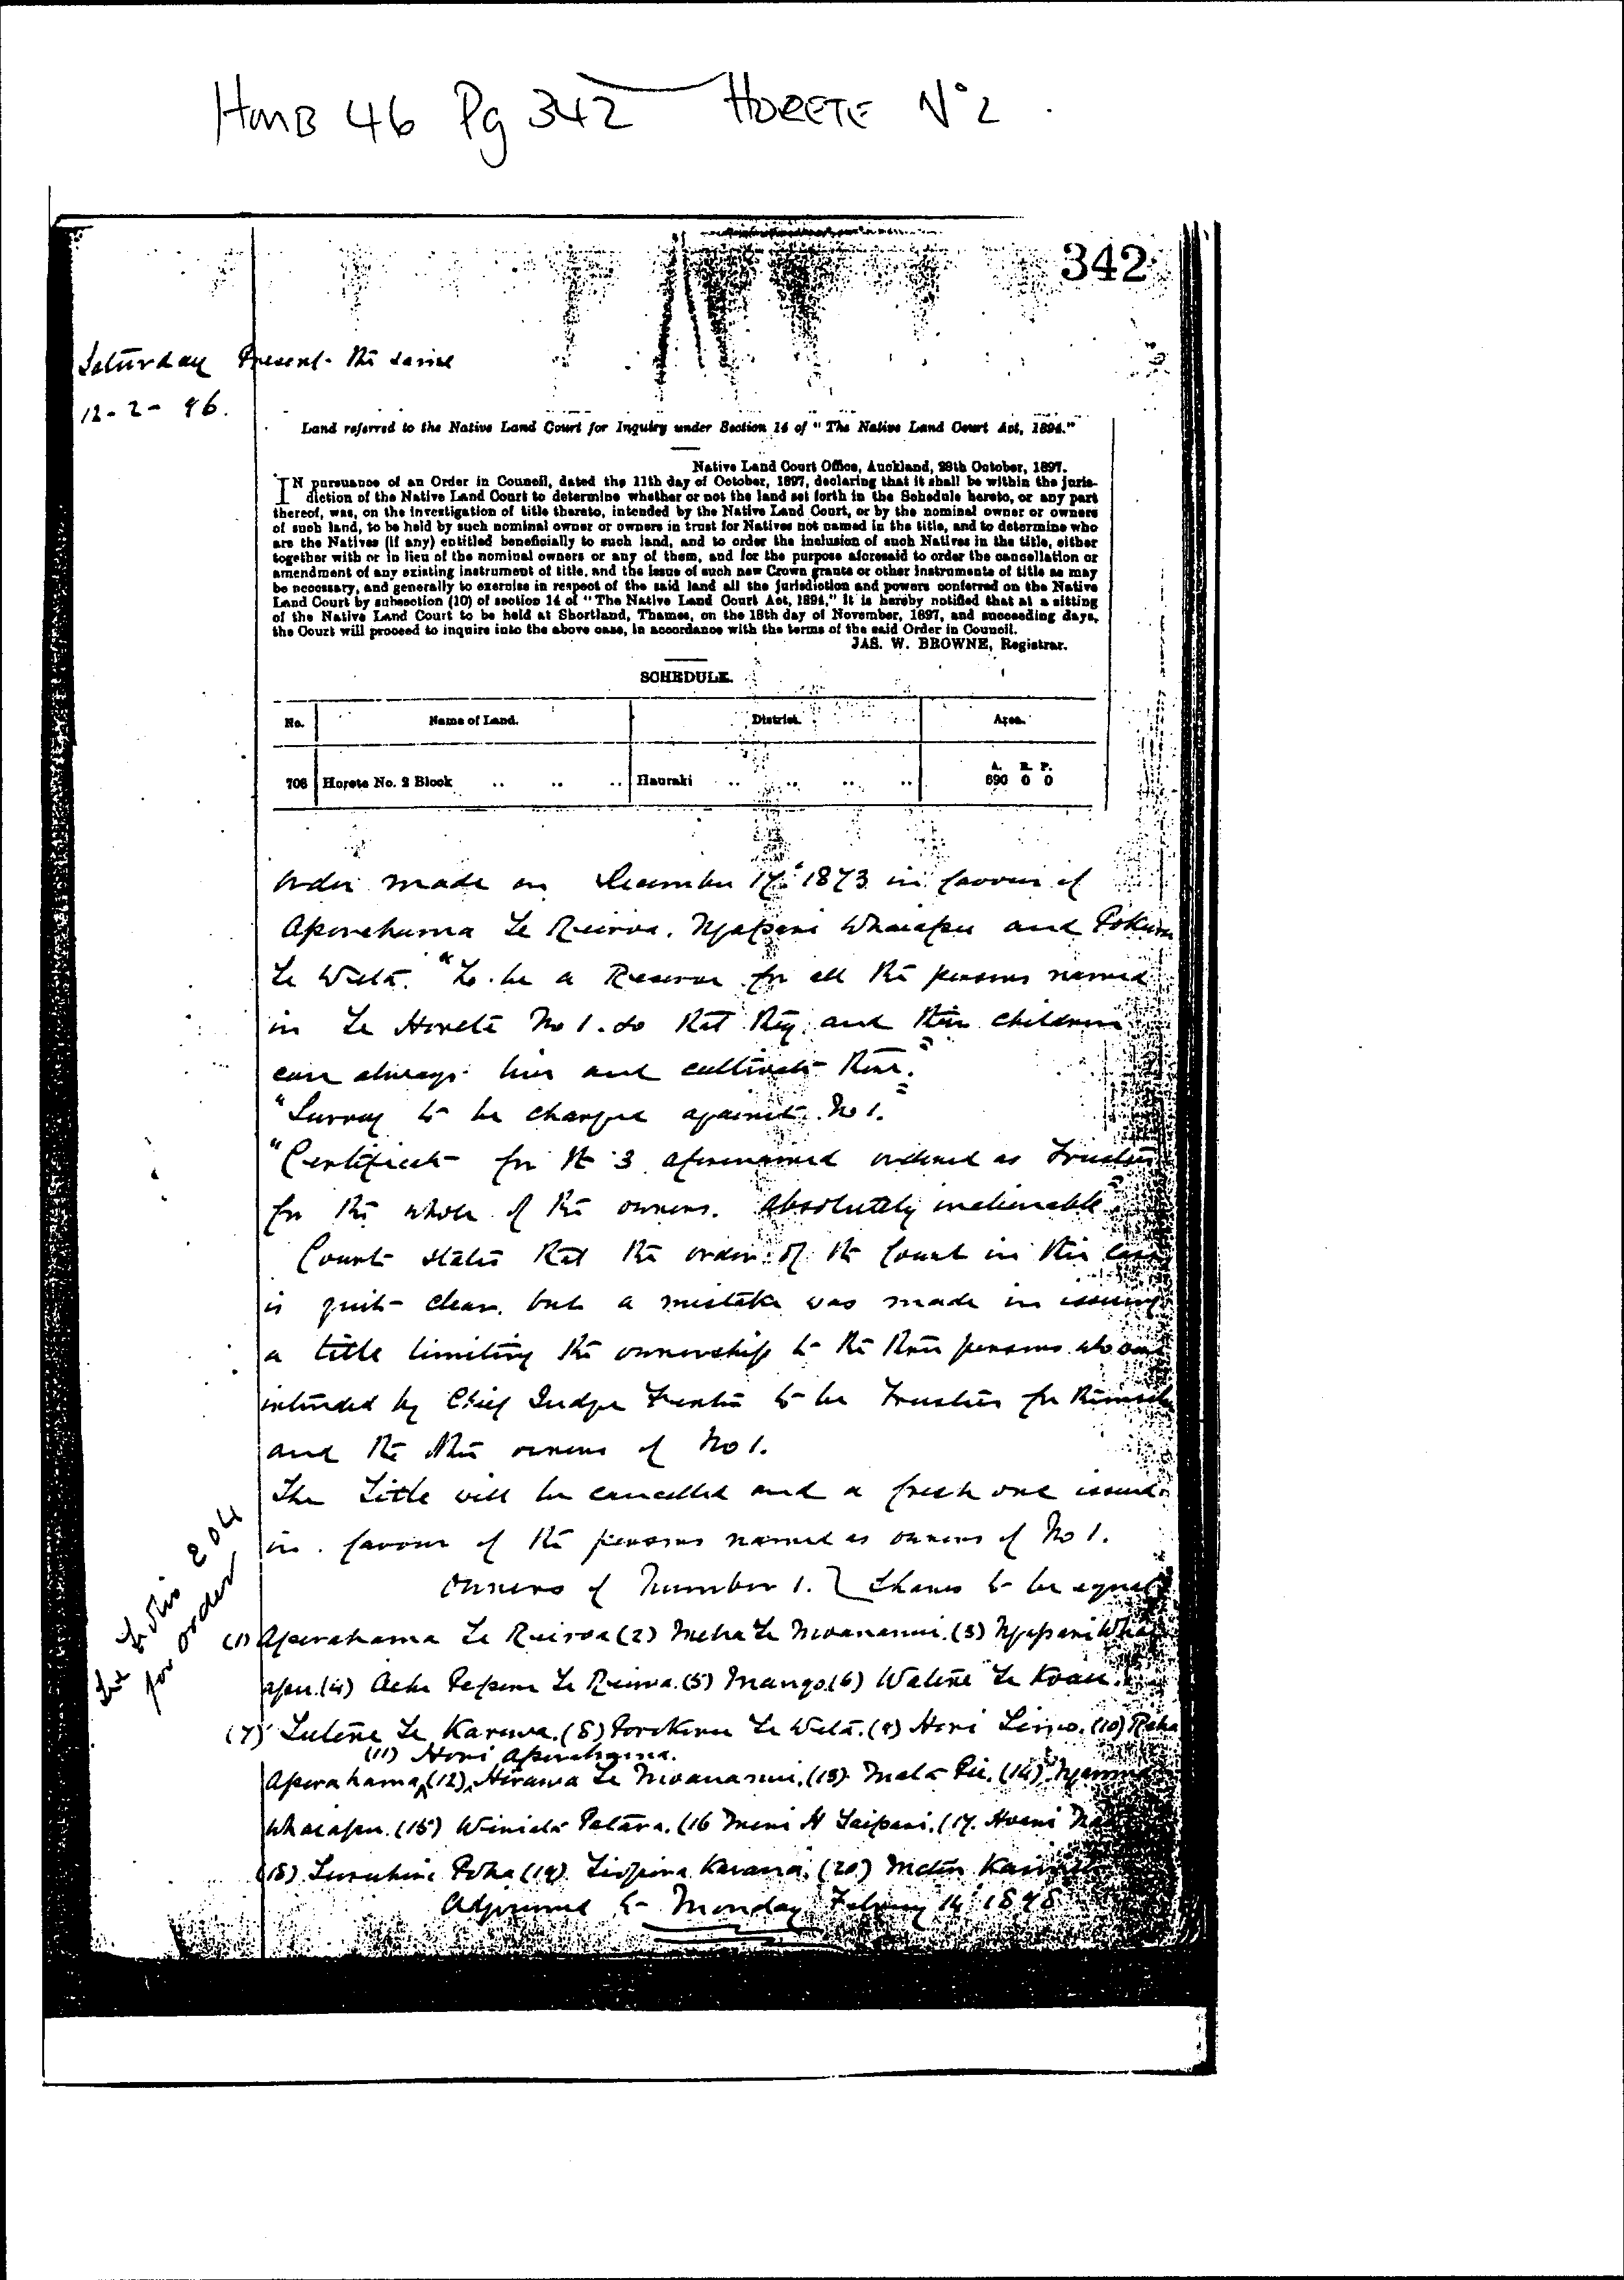 HMB 46 Pg 342 HORETE No 2
342
Saturday Present - the same
12-2-98.
Land referred to the Native Land Court for Inquiry under Section 14 of "The Native Land Court Act, 1894."
Native Land Court Office, Auckland, 28th October, 1897.
IN pursuance of an Order in Council, dated the 11th day of October, 1897, declaring that it shall be within the juris-
diction of the Native Land Court to determine whether or not the land set forth in the Schedule hereto, or any part
thereof, was, on the investigation of title thereto, intended by the Native Land Court, or by the nominal owner or owners
of such land, to be held by such nominal owner or owners in trust for Natives not named in the title, and to determine who
are the Natives (if any) entitled beneficially to such land, and to order the inclusion of such Natives in the title, either
together with or in lieu of the nominal owners or any of them, and for the purpose aforesaid to order the cancellation or
amendment of any existing instrument of title, and the issue of such new Crown grants or other instruments of title as may
be necessary, and generally to exercise in respect of the said land all the jurisdiction and powers conferred on the Native
Land Court by subsection (10) of section 14 of "The Native Land Court Act, 1894," it is hereby notified that at a sitting
of the Native Land Court to be held at Shortland, Thames, on the 18th day of November, 1897, and succeeding days,
the Court will proceed to inquire into the above case, in accordance with the terms of the said Order in Council.
JAS. W. BROWNE, Registrar.
SCHEDULE.
No. Name of Land. District. Area.
A. R. P.
706 Horete No. 2 Block .. .. .. Hauraki .. .. .. .. 690 0 0
Order made on December 17th 1873 in favour of
Aperahama Te Reiroa, Ngapari Whaiapu and
Te Wiata. "To be a Reserve for all the persons named
in Te Horete No 1. so that they and their children
can always live and cultivate there."
"Survey to be charged against No 1."
"Certificate for the 3 aforenamed ordered as Trustees
for the whole of the owners. Absolutely inalienable"
Court states that the order of the Court in this case
is quite clear, but a mistake was made in issuing
a title limiting the ownership to the three persons who were
intended by Chief Judge Fenton to be Trustees for themselves
and the other owners of No 1.
The Title will be cancelled and a fresh one issued
in favour of the persons named as owners of No 1.
Owners of Number 1. } Shares to be equal
See folio 204
for order
(1) Aperahama Te Reiroa (2) Meha Te Moananui. (3) Ngapari Whai
apu. (4) Te Reiroa. (5) Mango (6) Watene Te
(7) Te Karewa. (8) Te Wiata. (9) Hori (10)
(11) Hori Aperahama.
Aperahama, (12) Hirawa Te Moananui, (13) Mata (14)
Whaiapu. (15) Patara. (16 H Taipari. (17. Hoani
(18) (19) (20)
Adjourned to Monday February 14th 1898